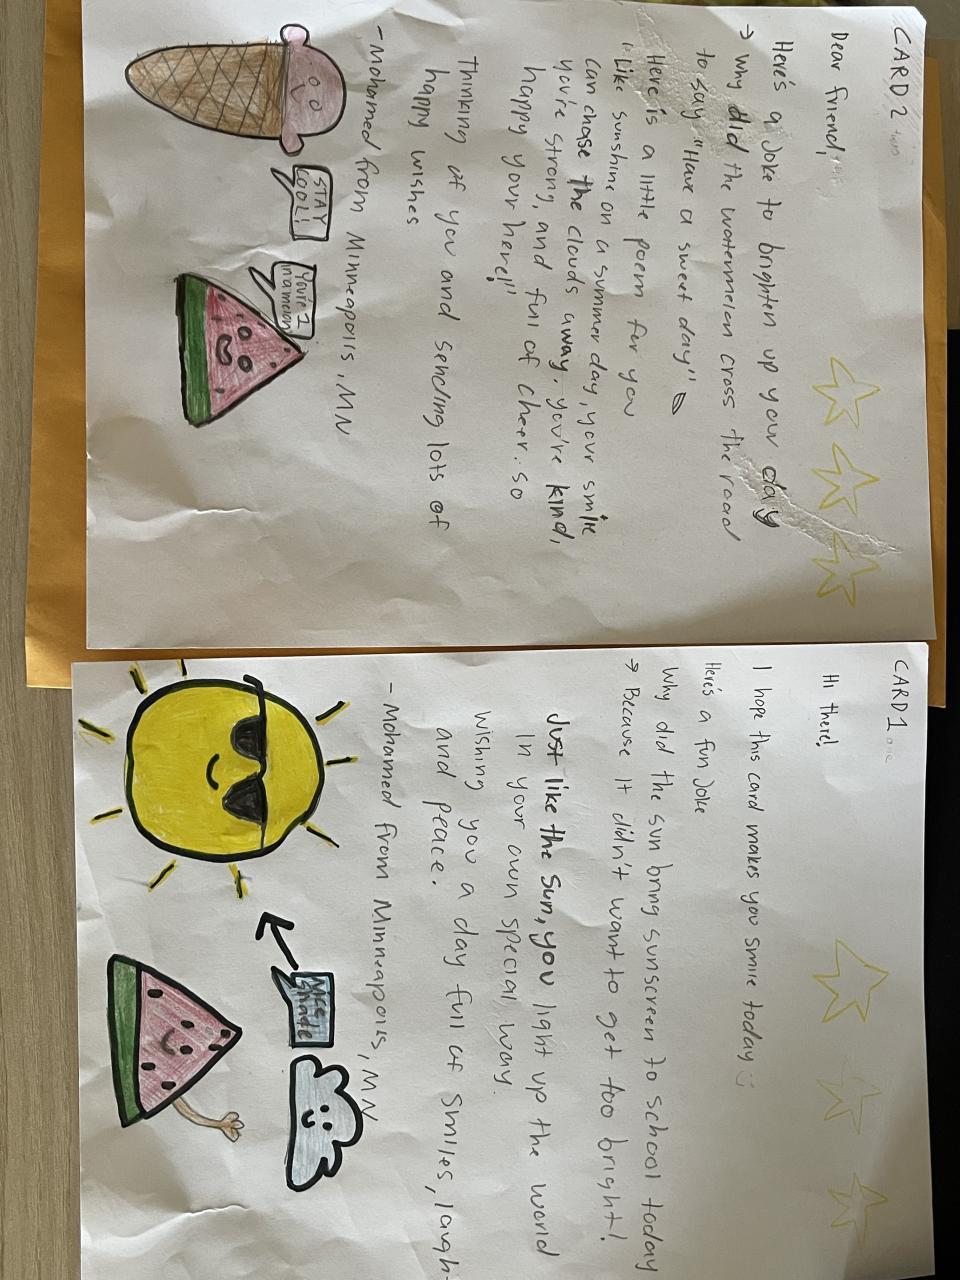 CARD 2 two
Dear friend,
Here's a joke to brighten up your day
→ Why did the watermelon cross the road
to say "Have a sweet day"
Here is a little poem for you
"Like sunshine on a summer day, your smile
can chase the clouds away. you're kind,
you're strong, and full of cheer. so
happy your here!"
Thinking of you and sending lots of
happy wishes
- Mohamed from Minneapolis, MN
STAY
COOL!
You're 1
in a melon
CARD 1 one
Hi there!
I hope this card makes you smile today
Here's a fun joke
Why did the sun bring sunscreen to school today
→ Because it didn't want to get too bright!
Just like the sun, you light up the world
In your own special way.
Wishing you a day full of smiles, laugh-
and peace.
- Mohamed from Minneapolis, MN
Nice
Shade